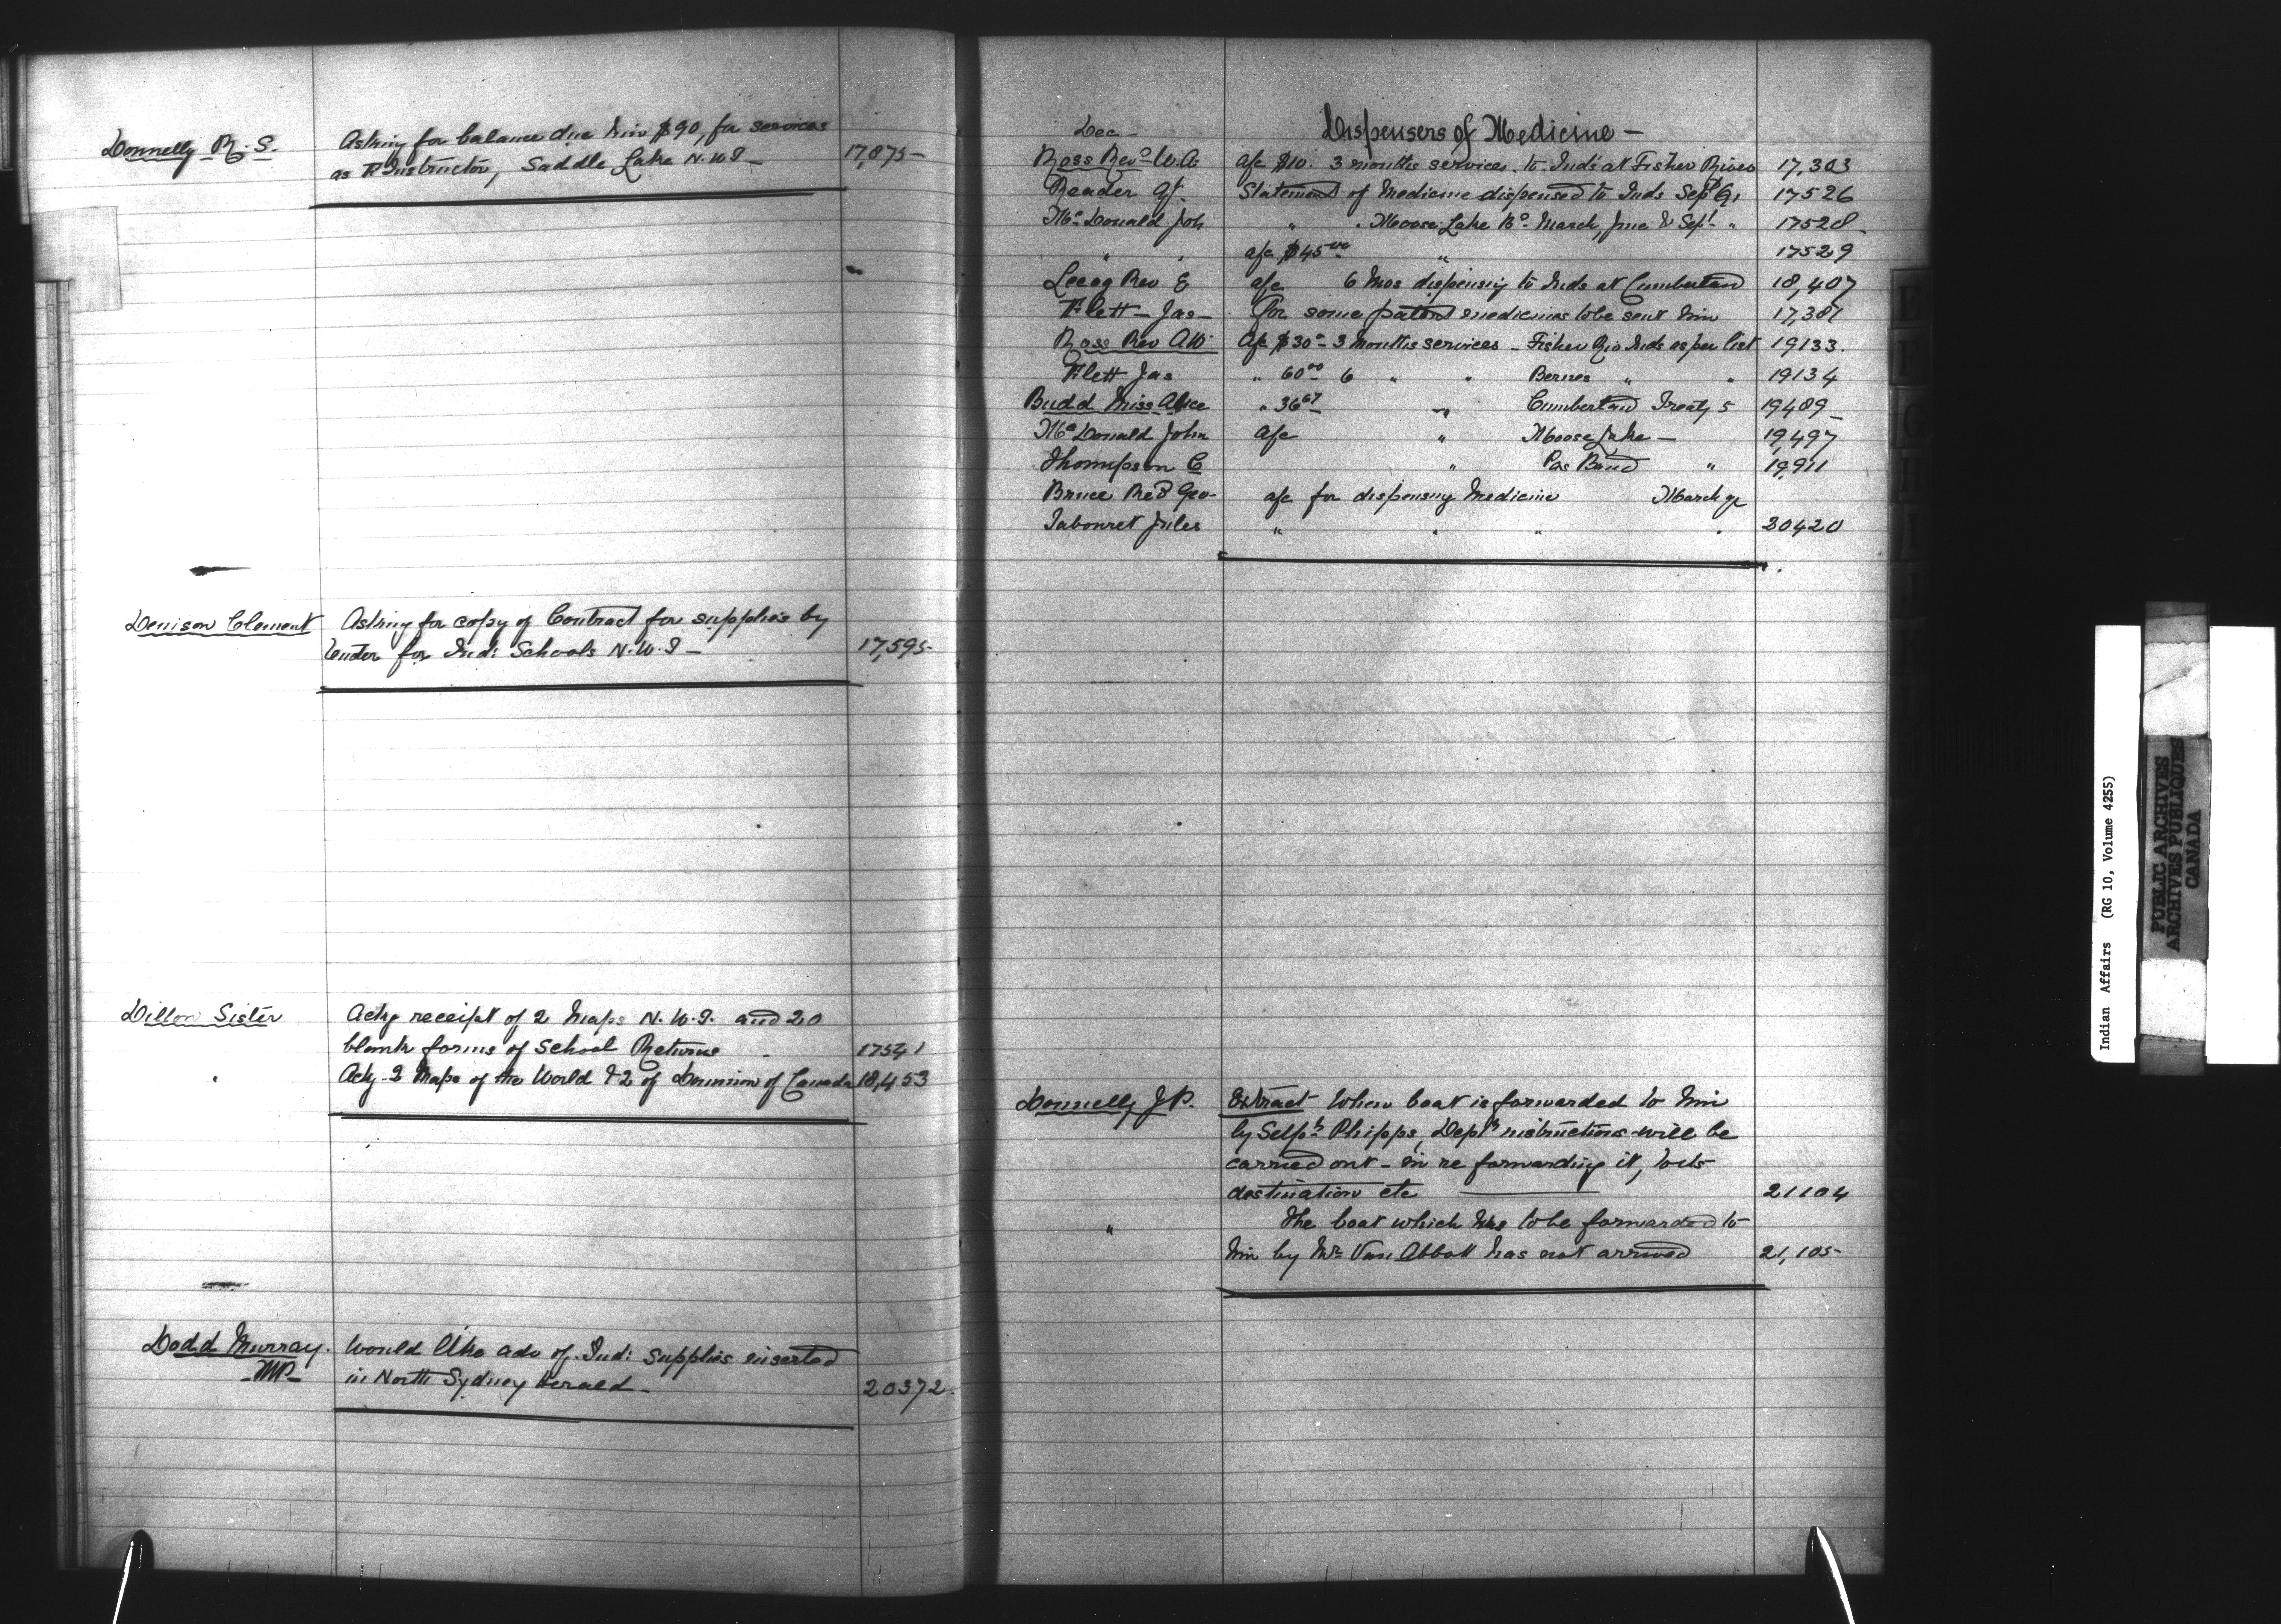 Donnelly R. S. Asking for balance due him $90, for services
as F Instructor, Saddle Lake N.W.T — 17,875 —
Denison Clement Asking for copy of Contract for supplies by
tender for Ind: Schools N.W.T — 17,595-
Dillon Sister Ackg receipt of 2 Maps N.W.T. and 20
blank forms of School Returns 17541
" Ackg 2 Maps of the World & 2 of Dominion of Canada 18,453
Dodd Murray. Would like adv of Ind: Supplies inserted
MP in North Sydney Herald — 20372-
Dec — Dispensers of Medicine —
Ross Revd W.A. a/c $10. 3 months services to Inds at Fisher River 17,303
Reader Statement of Medicine dispensed to Inds Sept 91 17526
McDonald Joh " " Moose Lake Bd March, June & Sept " 17528-
" " a/c $45.00 " 17529
Rev E a/c 6 Mos dispensing to Inds at Cumberland 18,407
Flett — Jas — for some patent medicines to be sent him 17,381
Ross Rev A W a/c $30.0 - 3 Months services — Fisher Riv Inds as per list 19133.
Flett Jas " 60.00 6 " " Bernes " " 19134
Budd Miss Alice " 36.67 " Cumberland Treaty 5 19489 —
McDonald John a/c " Moose Lake — 19,497
Thompson C " Pas Band " 19,911
Bruce Revd Geo — a/c for dispensing Medicine March
Tabouret Jules " " " " 20420
Donnelly J P. Extract When boat is forwarded to him
by Selph Phipps, Depts instructions will be
carried out — in re forwarding it, to its
destination etc — 21104
" The boat which was to be forwarded to
him by Mr Van Abbott has not arrived 21,105-
Indian Affairs (RG 10, Volume 4255)
PUBLIC ARCHIVES
ARCHIVES PUBLIQUES
CANADA